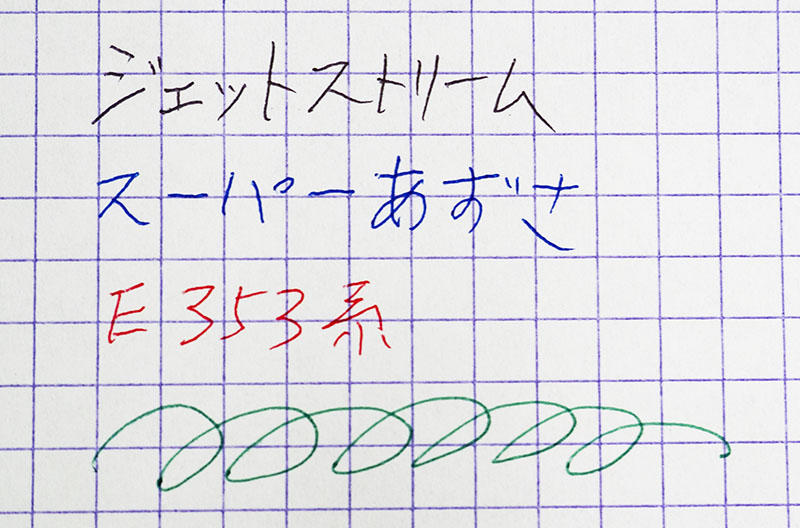 ジェットストリーム
スーパーあずさ
E353系